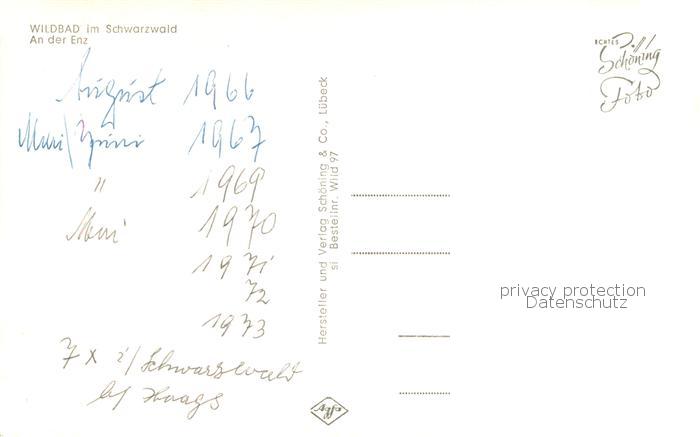 WILDBAD im Schwarzwald
An der Enz
August 1966
Mai/Juni 1967
" 1969
Mai 1970
1971
72
1973
7 x i/Schwarzwald
b/Haags
Hersteller und Verlag Schöning & Co., Lübeck
si Bestellnr. Wild 97
ECHTES
Schöning
Foto
privacy protection
Datenschutz
Agfa